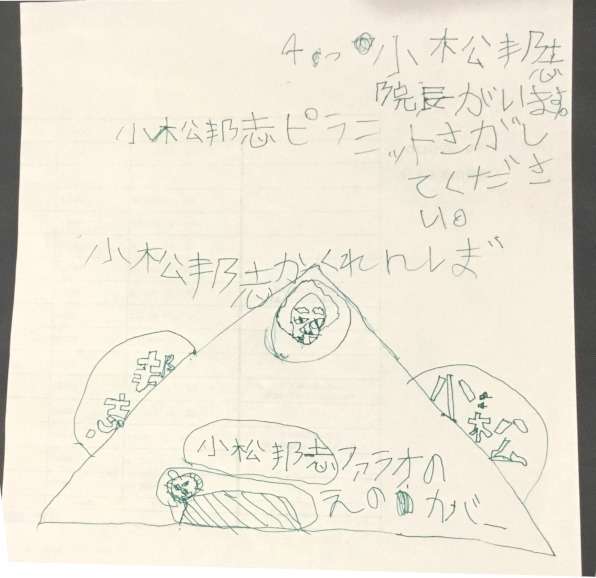 4つ小松邦志
院長がいます。
さがし
てくださ
い。
小松邦志ピラミット
小松邦志かくれんしぼ
邦志
小松
小松邦志ファラオの
えのカバー